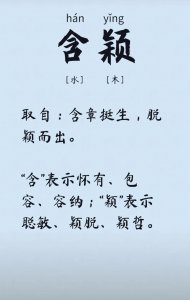 hán yǐng
含颖
[水] [木]
取自：含章挺生，脱
颖而出。
“含”表示怀有、包
容、容纳；“颖”表示
聪敏、颖脱、颖哲。